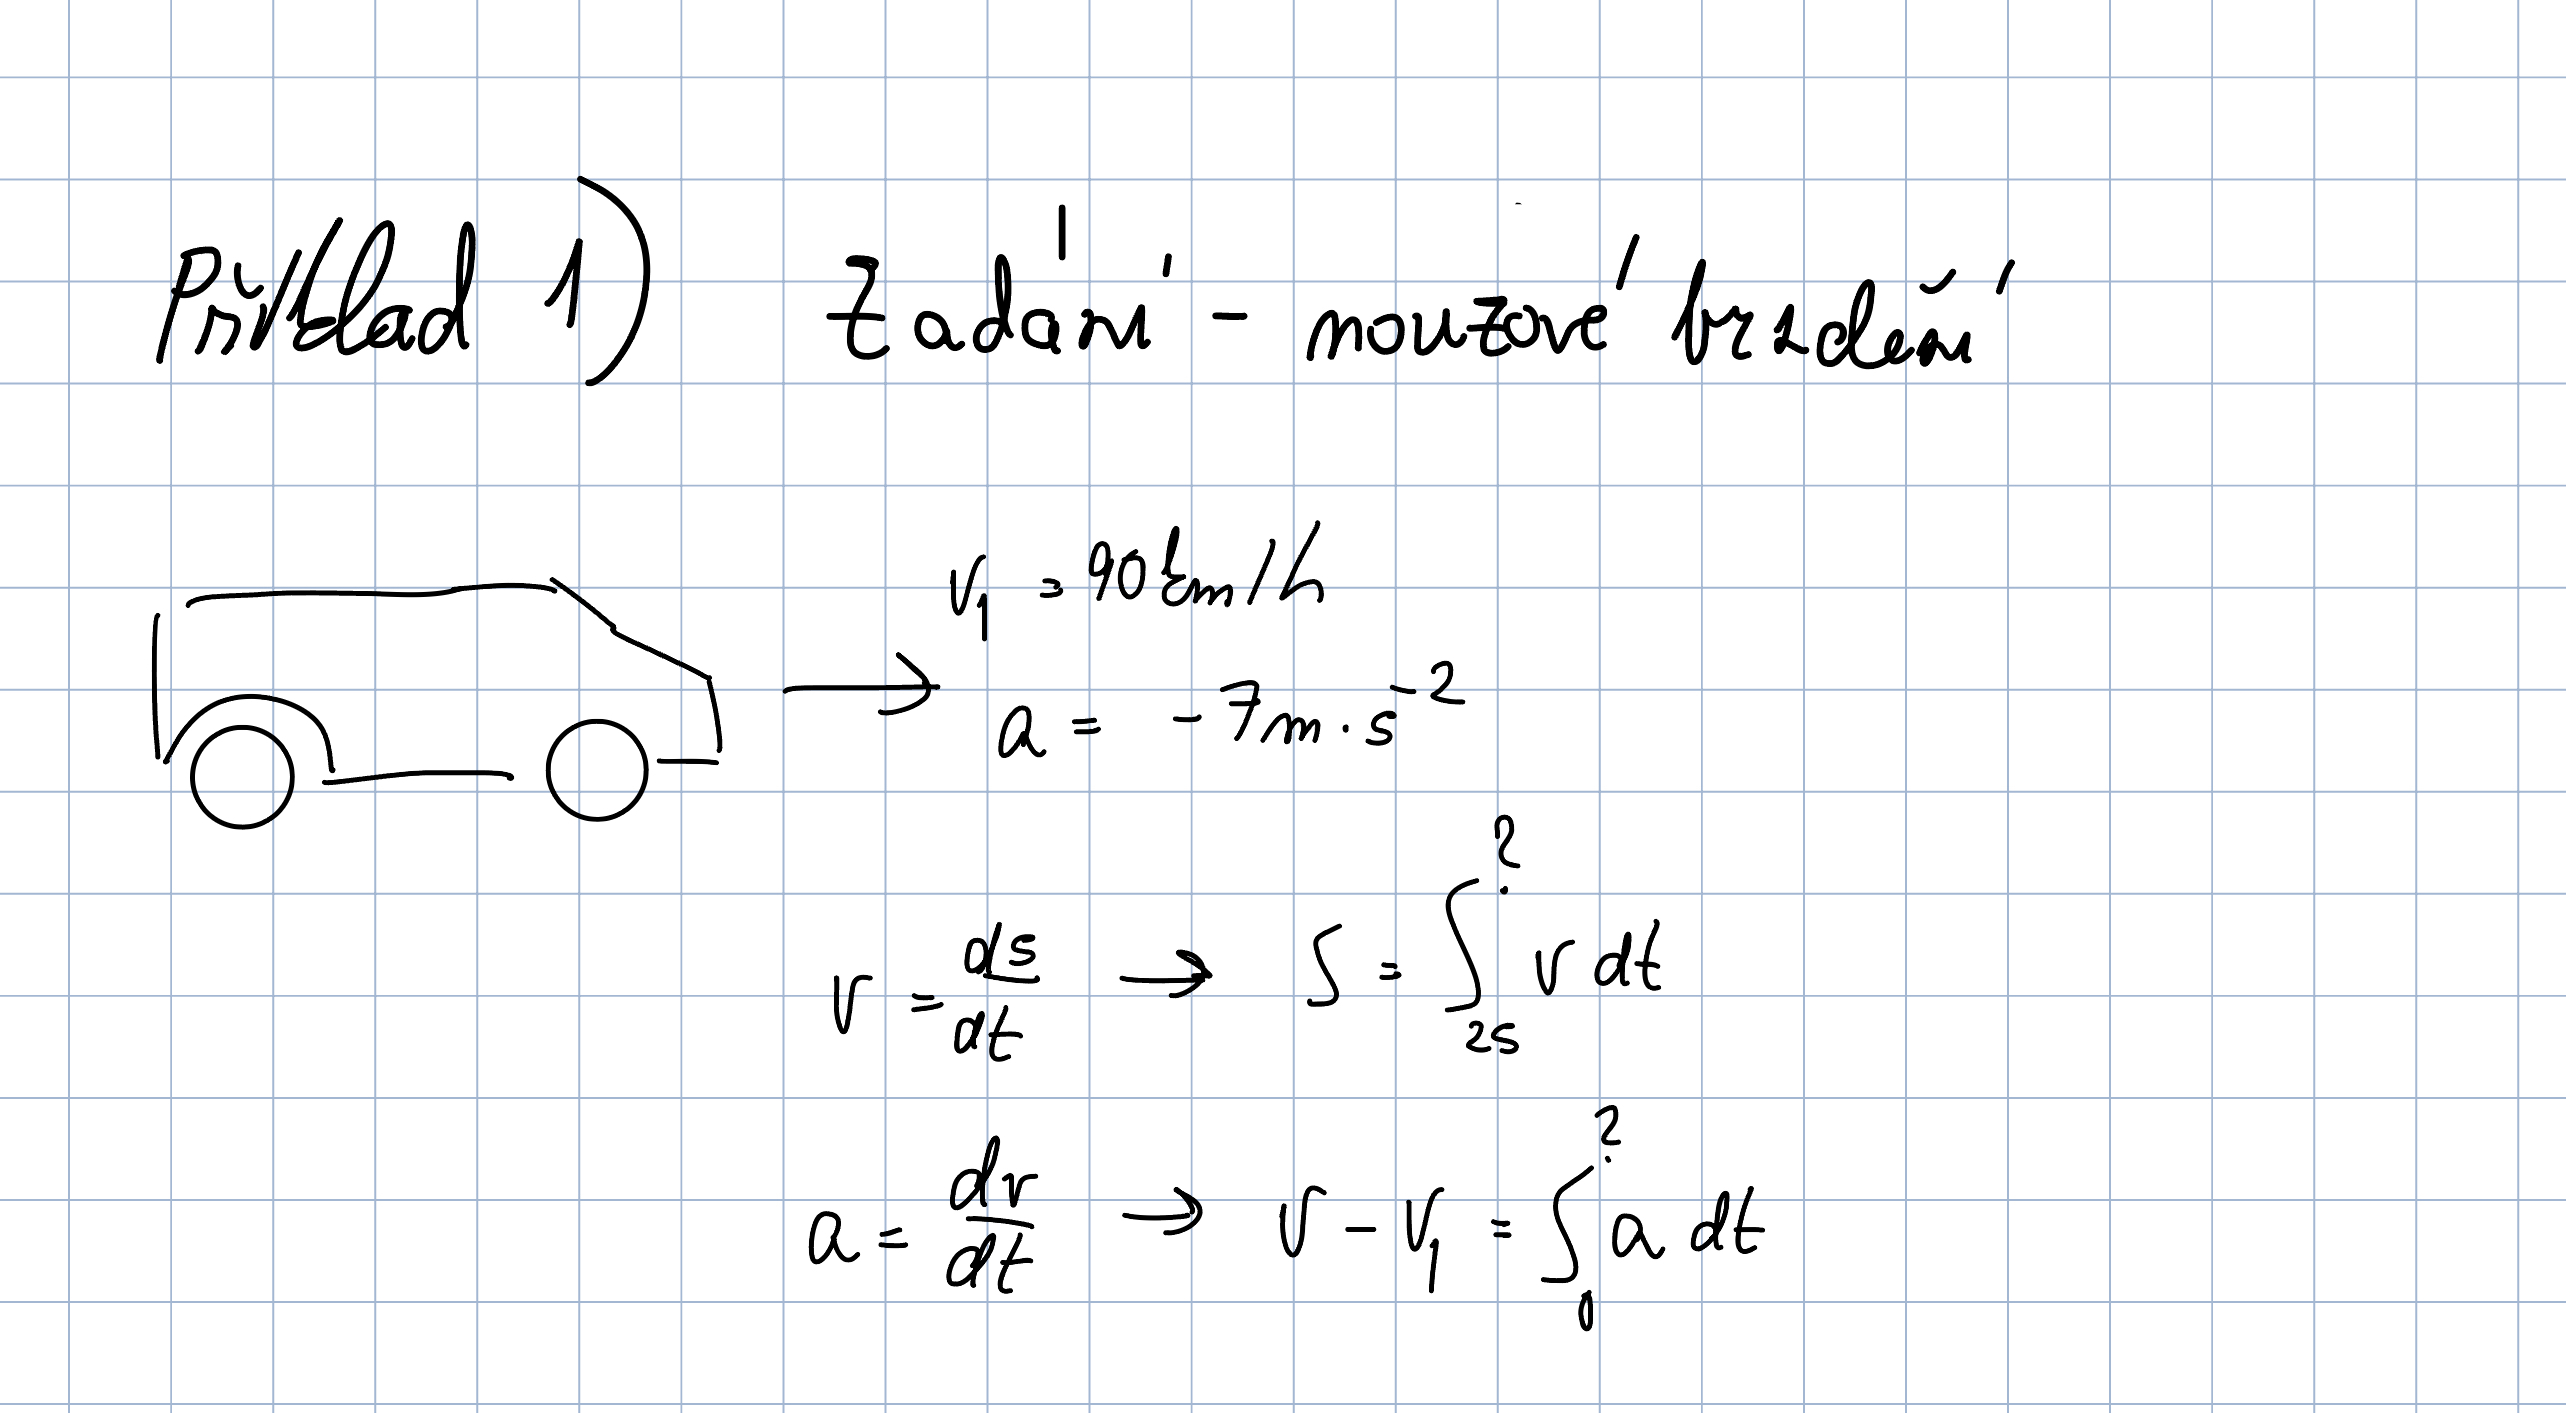 Příklad 1) Zadání - nouzové brždění
v₁ = 90 km/h
a = -7 m · s⁻²
v = ds/dt → s = ∫₂ₛ^? v dt
a = dv/dt → v - v₁ = ∫₀^? a dt